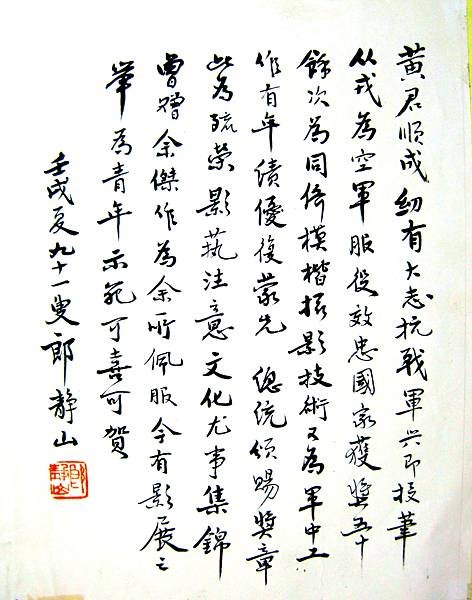 黃君順成幼有大志抗戰軍兴即投筆
从戎為空軍服役效忠國家獲獎五十
餘次為同儕模楷攝影技術又為軍中工
作有年績優復蒙先 總統頒賜獎章
此為殊榮影藝注意文化尤事集錦
曾贈余傑作為余所佩服今有影展之
舉為青年示範可喜可賀
壬戌夏九十一叟郎靜山
郎靜山